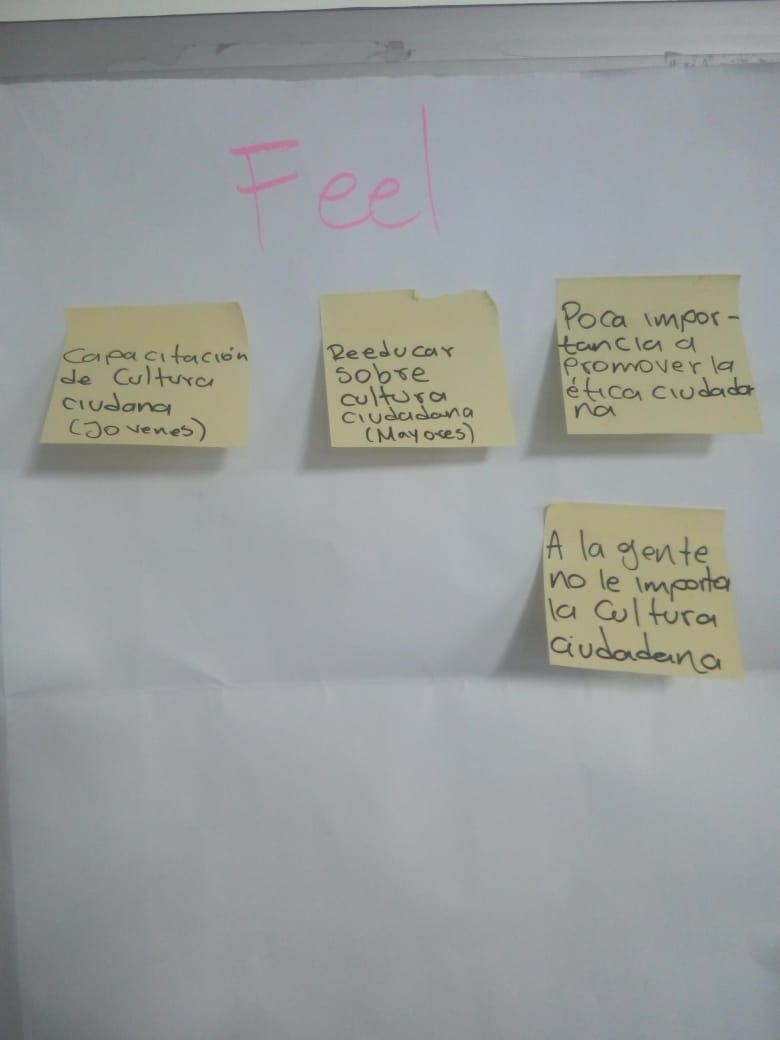 Feel
Capacitación
de Cultura
ciudana
(Jovenes)
Reeducar
sobre
cultura
ciudadana
(Mayores)
Poca impor-
tancia a
promover la
ética ciudada
na
A la gente
no le importa
la Cultura
ciudadana